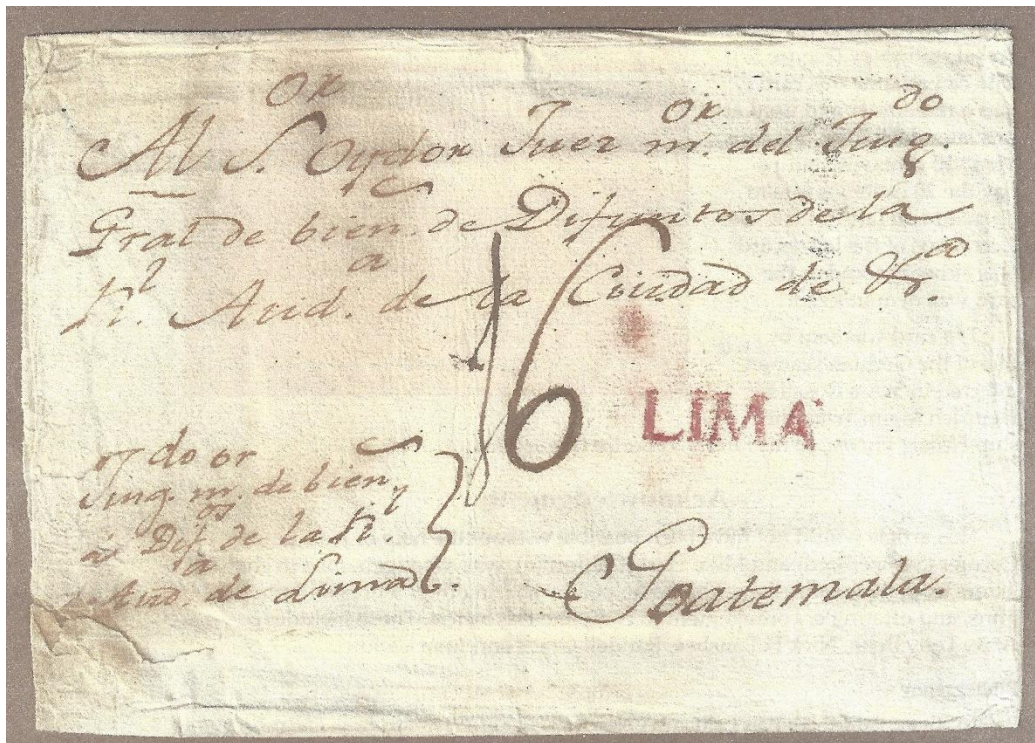 Al S.or Oydor Juez m.or del Juzg.do
Gral de bien.s de Difuntos de la
R.l Aud.a de la Ciudad de
16
LIMA
Juzg.do m.or de bien.s
Dif.os de la R.l
Aud.a de Lima.
Goatemala.